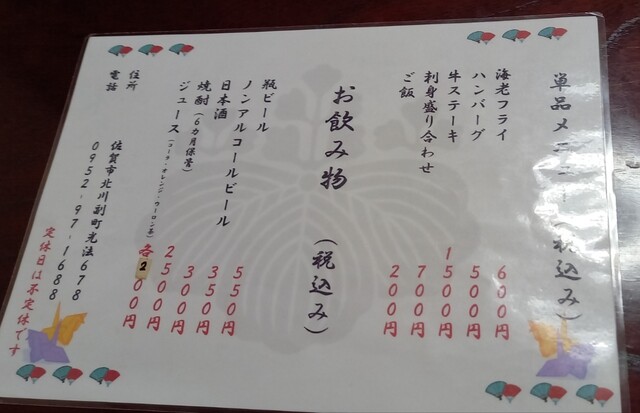 単品メニュー (税込み)
海老フライ 600円
ハンバーグ 500円
牛ステーキ 1500円
刺身盛り合わせ 700円
ご飯 200円
お飲み物 (税込み)
瓶ビール 550円
ノンアルコールビール 350円
日本酒 300円
焼酎(6カ月保管) 2500円
ジュース(コーラ・オレンジ・ウーロン茶) 各200円
住所 佐賀市北川副町光法678
電話 0952-97-1688
定休日は不定休です